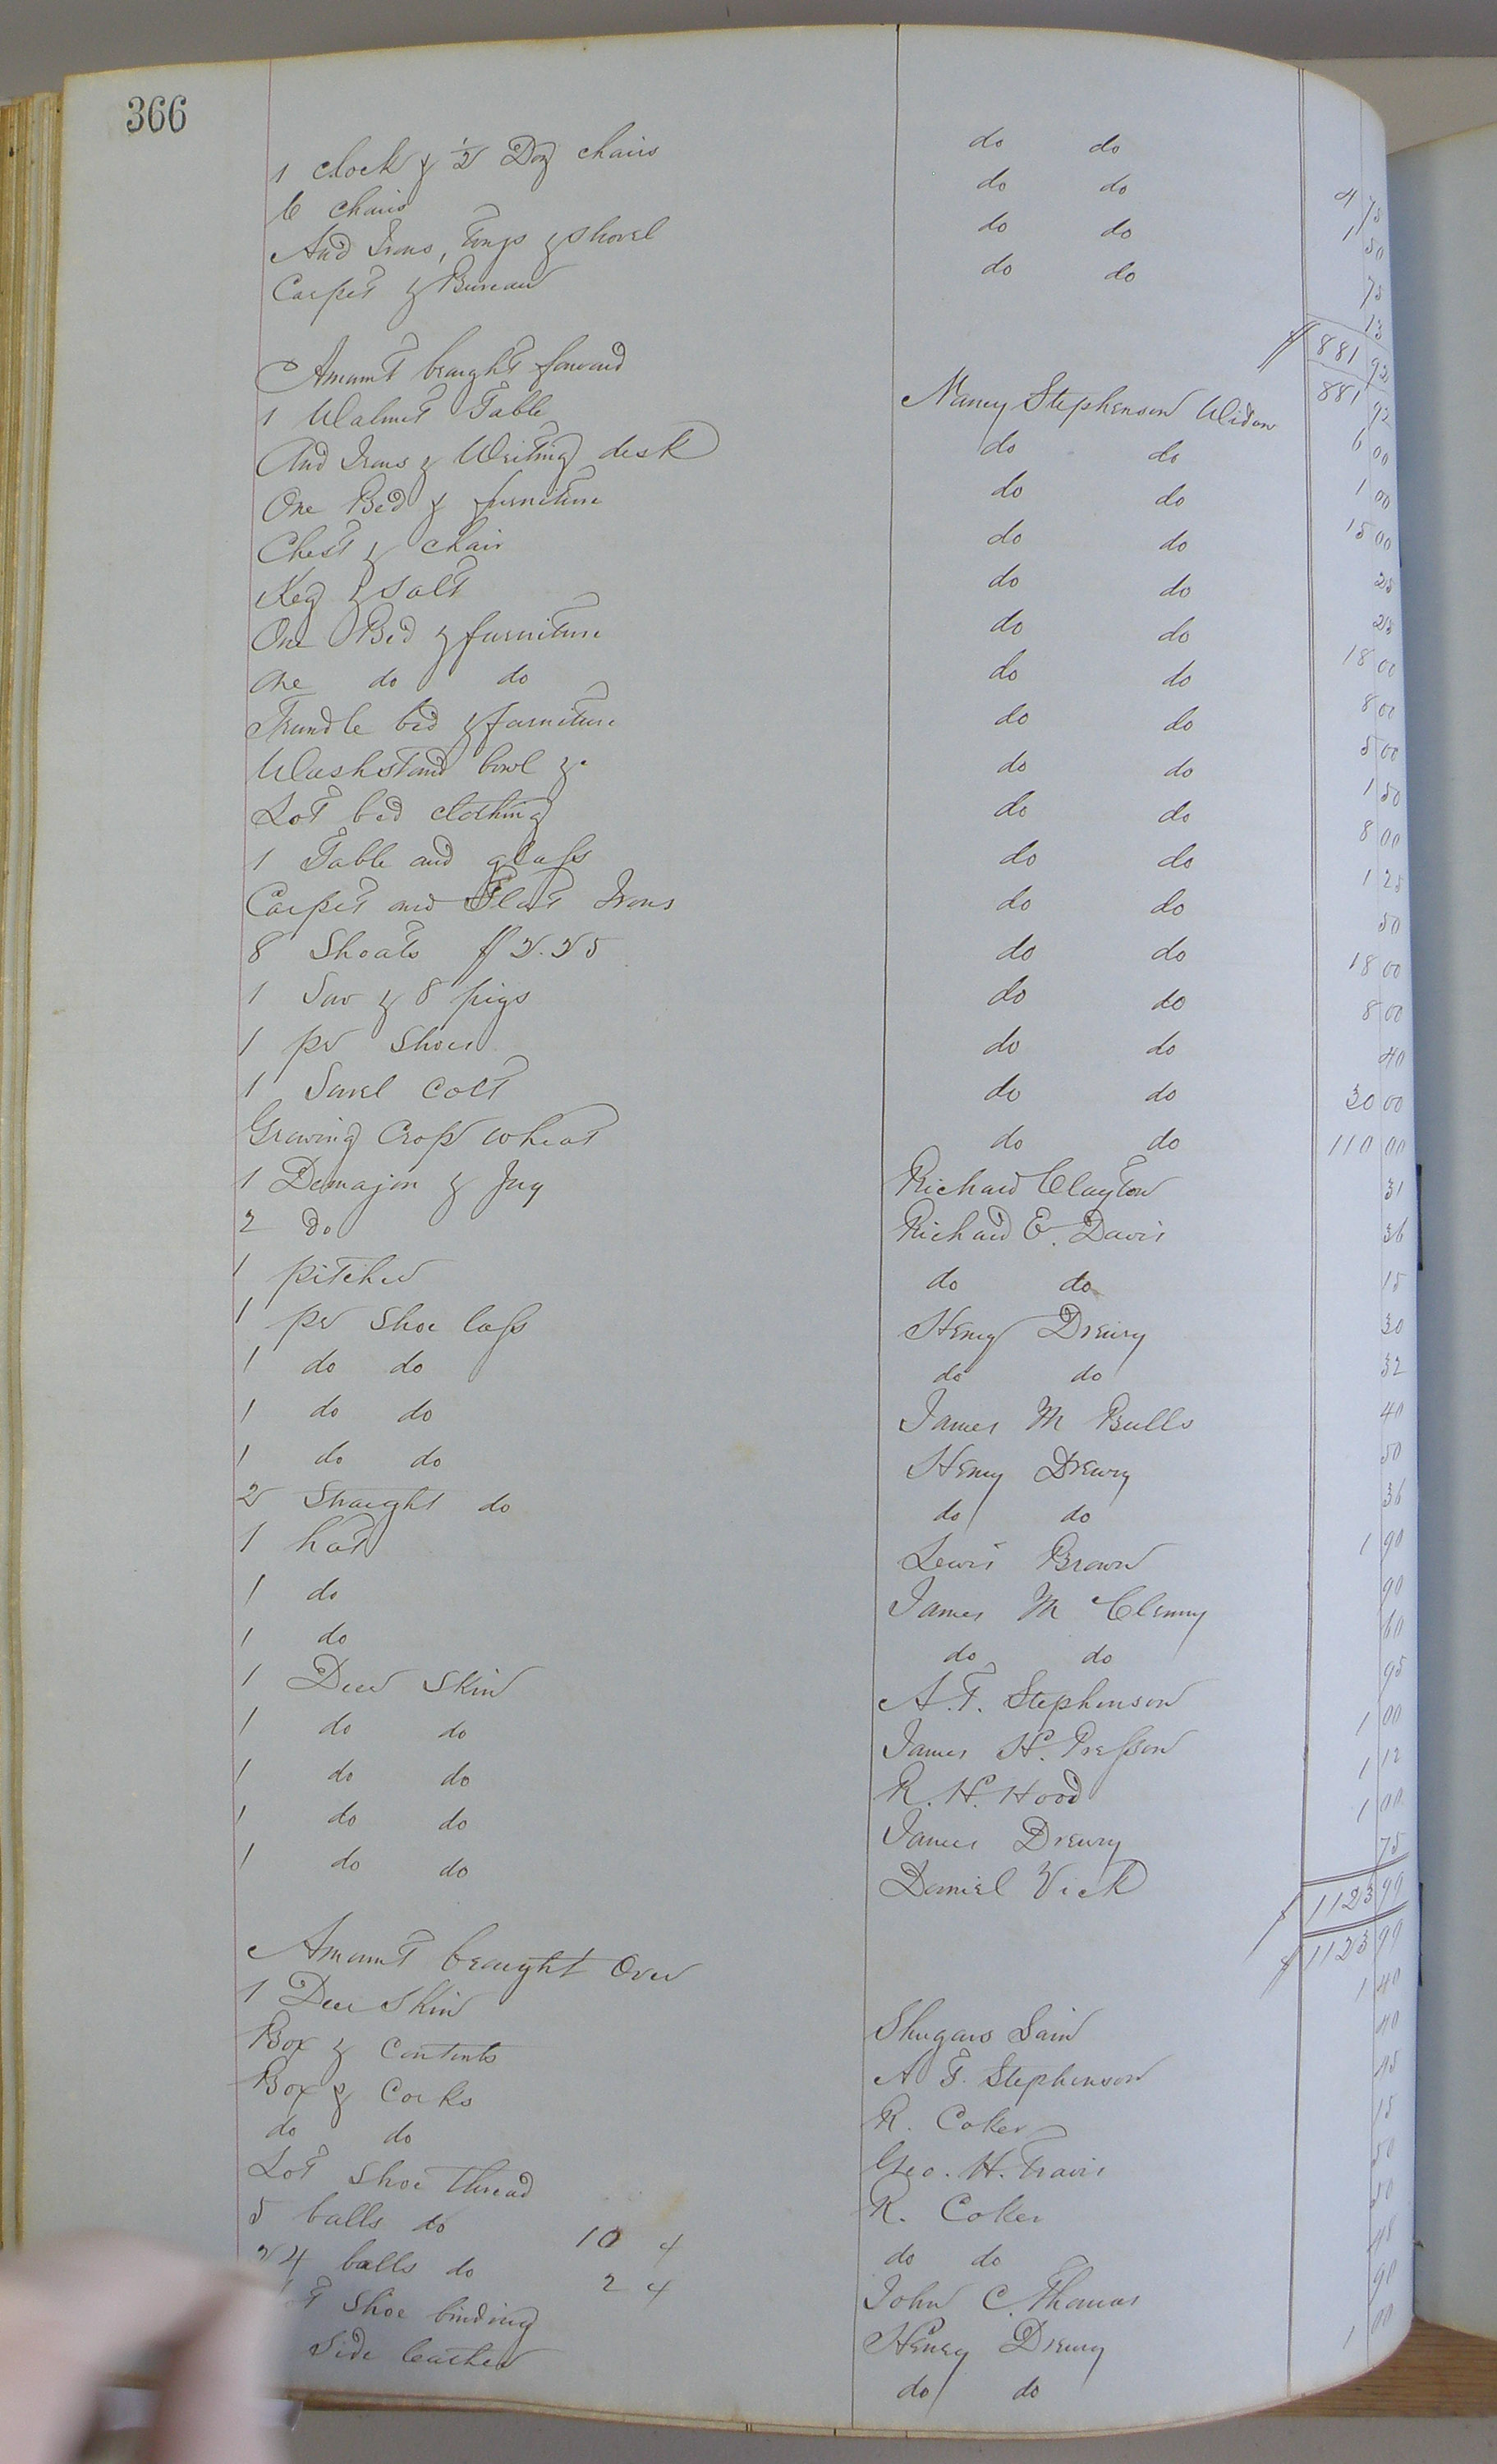 366
1 clock & 1/2 Doz chairs do do 4 75
6 chairs do do 1 50
And Irons, Tongs & Shovel do do 75
Carpet & Bureau do do 13
$ 881 92
Amount braught forward 881 92
1 Walnut Table Nancy Stephenson Widow 6 00
And Irons & Writing desk do do 1 00
One Bed & furniture do do 15 00
Chest & chair do do 25
Keg & Salt do do 25
One Bed & furniture do do 18 00
One do do do do 8 00
Trundle bed & furniture do do 5 00
Washstand bowl &. do do 1 50
Lot bed clothing do do 8 00
1 Table and glass do do 1 25
Carpet and Flat Irons do do 50
8 Shoats $2.25 do do 18 00
1 Sow & 8 pigs do do 8 00
1 pr Shoes do do 40
1 Sorel Colt do do 30 00
Growing Crop wheat do do 110 00
1 Demajon & Jug Richard Clayton 31
2 do Richard E. Davis 36
1 pitcher do do 15
1 pr Shoe lass Henry Drewry 30
1 do do do do 32
1 do do James M Bulls 40
1 do do Henry Drewry 50
2 Straight do do do 36
1 hat Lewis Brown 1 90
1 do James M Clenny 90
1 do do do 60
1 Deer Skin A. T. Stephenson 95
1 do do James H. Presson 1 00
1 do do R. H. Hood 1 12
1 do do James Drewry 1 00
1 do do Daniel Vick 75
$ 1123 99
Amount braught Over $ 1123 99
1 Deer Skin Shugars Lain 1 40
Box & Contents A T. Stephenson 40
Box & Corks R. Coker 45
do do Geo. H. Travis 15
Lot Shoe thread R. Coker 50
5 balls do 10 4 do do 50
24 balls do 2 4 John C. Thomas 48
Shoe binding Henry Drewry 90
Side leather do do 1 00